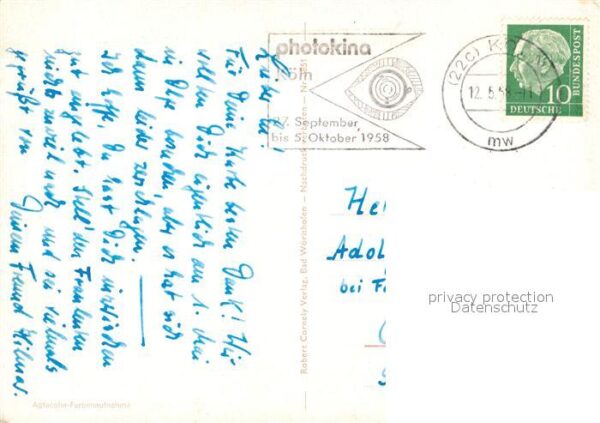 Lieber
Für Deine Karte besten Dank! Wir
wollten Dich eigentlich am 1. Mai
in besuchen aber es hat sich
dann leider zerschlagen.
Ich hoffe, Du hast Dich inzwischen
gut eingelebt. Stell' den Fräuleins
nicht zuviel nach und sei vielmals
gegrüßt von
Deinem Freund
photokina
Köln
27. September
bis 5. Oktober 1958
(22c) KÖLN
12.5.58
mw
10
DEUTSCHE
BUNDESPOST
He
Adol
bei F
privacy protection
Datenschutz
Robert Cornely Verlag, Bad Wörishofen — Nachdruck verboten — Nr.
Agfacolor-Farbenaufnahme